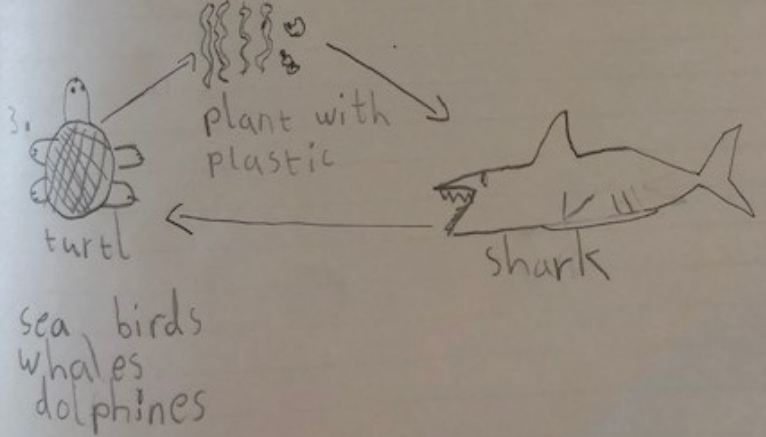 3.
plant with
plastic
turtl
shark
sea birds
whales
dolphines